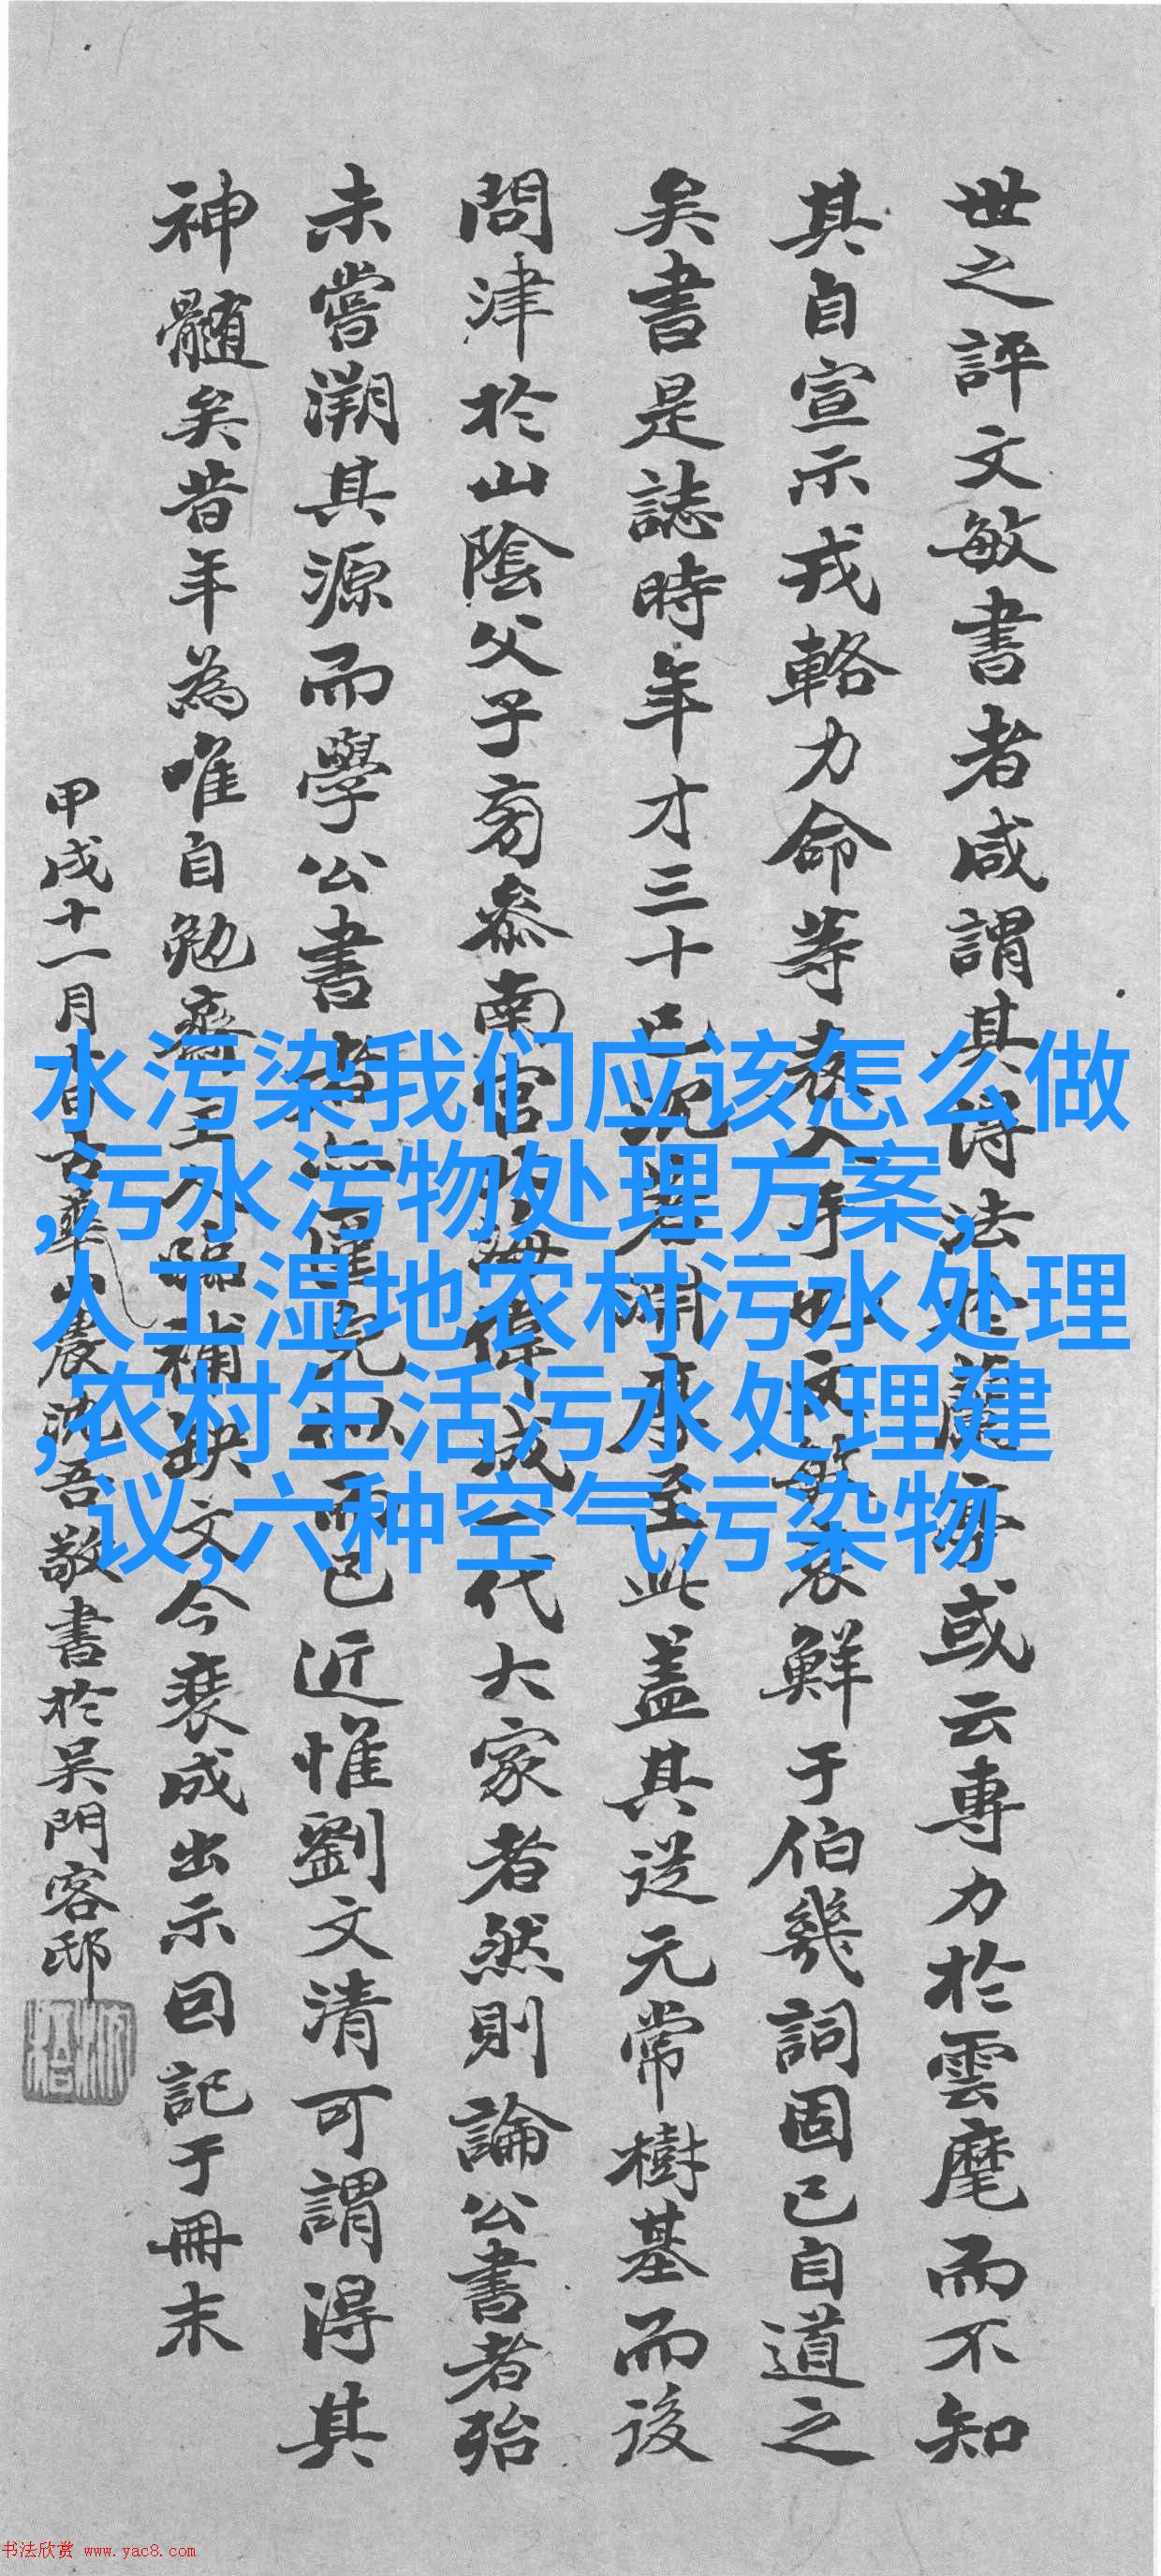 世之評文敏書者咸謂其得法於蘭亭或云專力於雲麾而不知
其自宣示戎輅力命等表入手也文敏表鮮于伯幾詞固已自道之
矣書是誌時年才三十已沉著淵厚至此蓋其從元常樹基而後
問津於山陰父子旁參南宮北海偉成一代大家者然則論公書者殆
未嘗溯其源而學公書者似而已近惟劉文清可謂得其
神髓矣昔年為唯自勉齋主人臨補缺文今裝成出示回記于冊末
甲戌十一月古華山農沈吾敬書於吳門客邸
水污染我们应该怎么做
,污水污物处理方案,
人工湿地农村污水处理
,农村生活污水处理建
议,六种空气污染物
书法欣赏 www.yac8.com